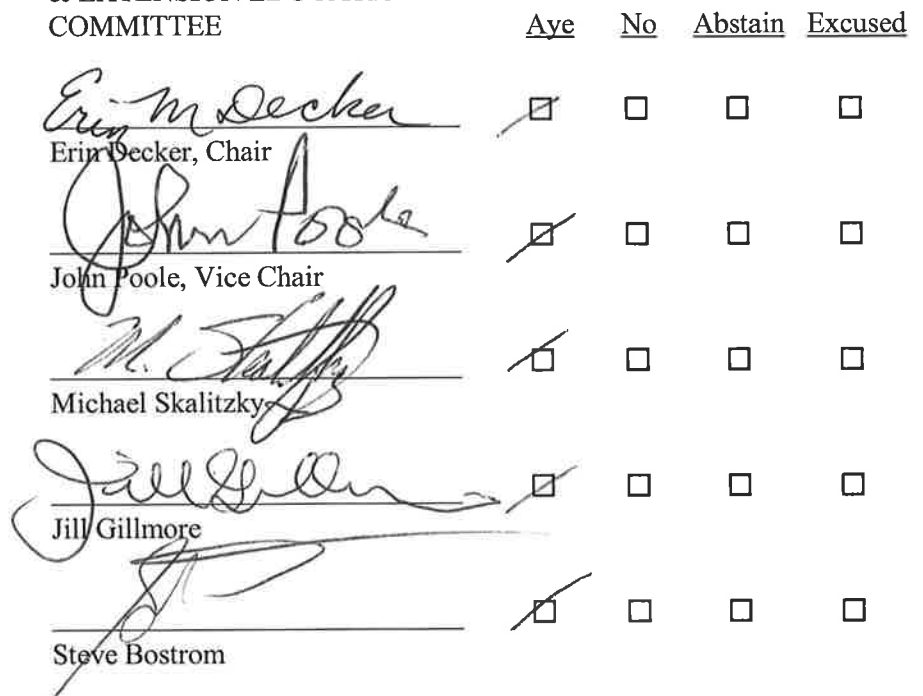 COMMITTEE
Aye No Abstain Excused
Erin M Decker
Erin Decker, Chair
John Poole
John Poole, Vice Chair
M. Skalitzky
Michael Skalitzky
Jill Gillmore
Jill Gillmore
Steve Bostrom